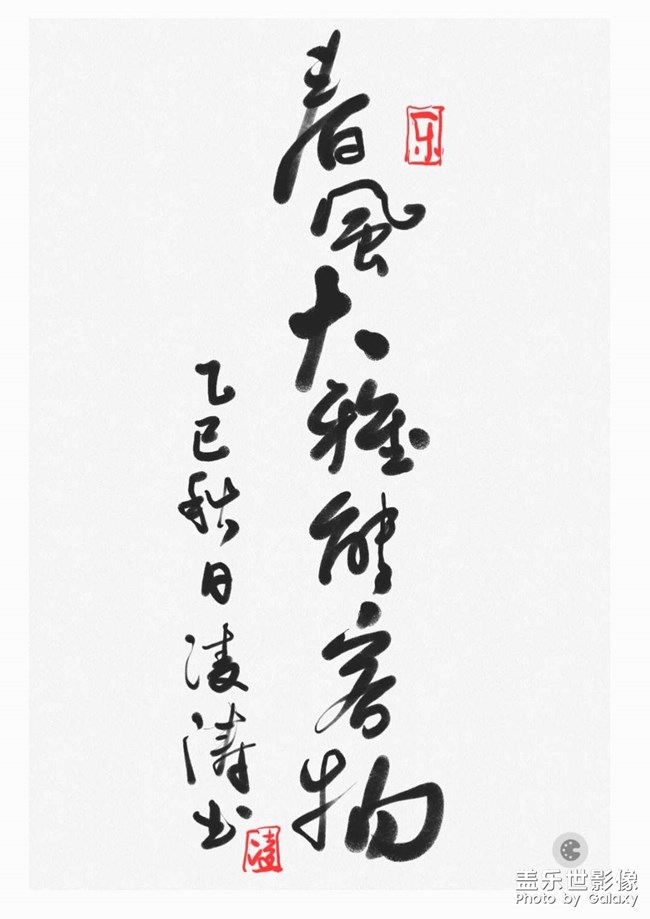 春風大雅能容物
乐
乙巳秋日凌涛书
凌
盖乐世影像
Photo by Galaxy